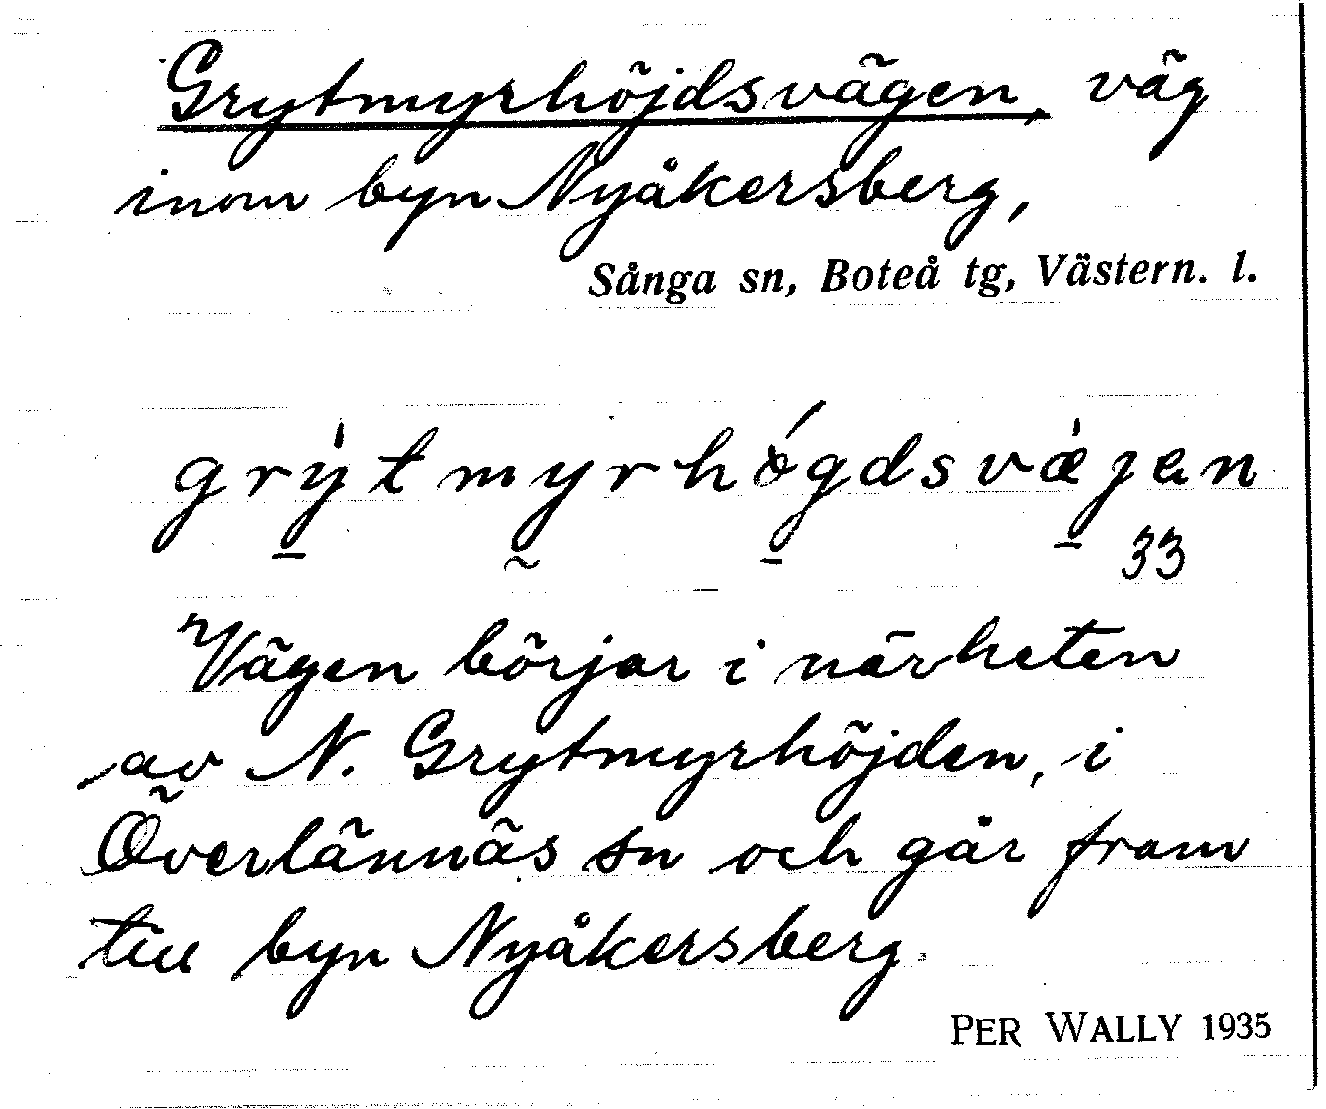 Grytmyrhöjdsvägen, väg
inom byn Nyåkersberg,
Sånga sn, Boteå tg, Västern. l.
grỳtmyrhǿgdsvæ̀jen
33
Vägen börjar i närheten
av N. Grytmyrhöjden, i
Överlännäs sn och går fram
till byn Nyåkersberg.
PER WALLY 1935